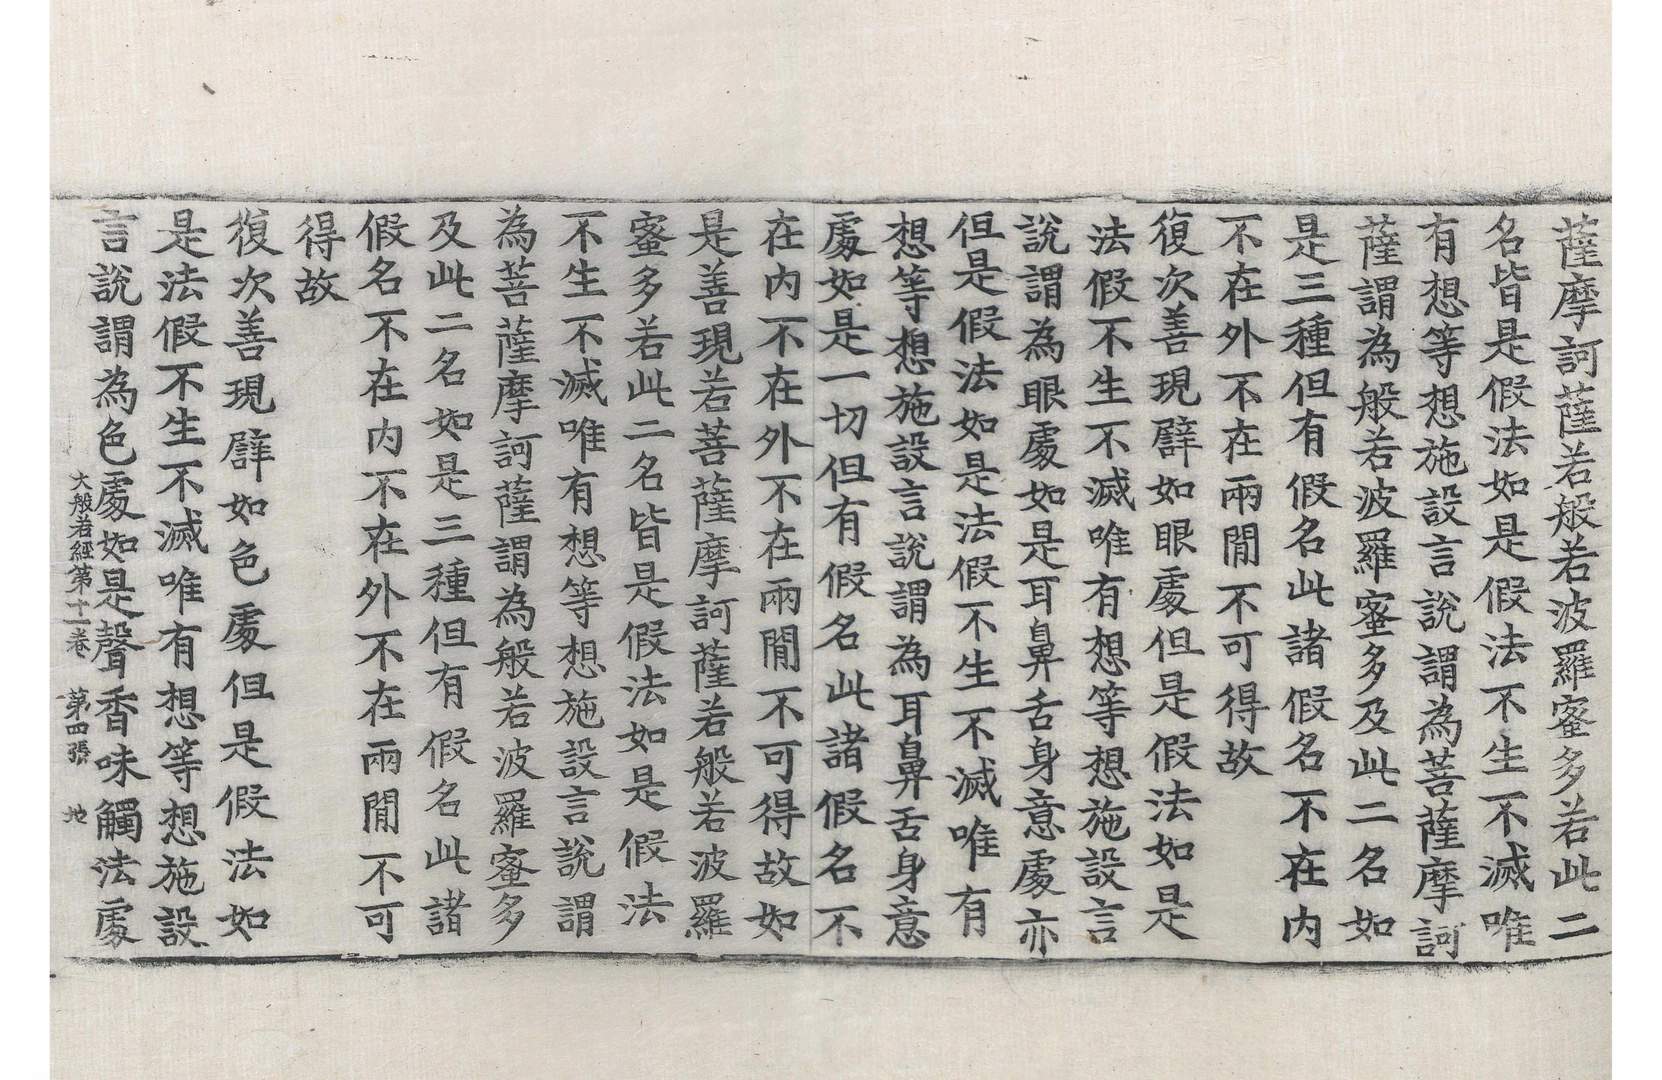 薩摩訶薩若般若波羅蜜多若此二
名皆是假法如是假法不生不滅唯
有想等想施設言說謂為菩薩摩訶
薩謂為般若波羅蜜多及此二名如
是三種但有假名此諸假名不在內
不在外不在兩間不可得故
復次善現譬如眼處但是假法如是
法假不生不滅唯有想等想施設言
說謂為眼處如是耳鼻舌身意處亦
但是假法如是法假不生不滅唯有
想等想施設言說謂為耳鼻舌身意
處如是一切但有假名此諸假名不
在內不在外不在兩間不可得故如
是善現若菩薩摩訶薩若般若波羅
蜜多若此二名皆是假法如是假法
不生不滅唯有想等想施設言說謂
為菩薩摩訶薩謂為般若波羅蜜多
及此二名如是三種但有假名此諸
假名不在內不在外不在兩間不可
得故
復次善現譬如色處但是假法如
是法假不生不滅唯有想等想施設
言說謂為色處如是聲香味觸法處
大般若經第十一卷 第四張 地